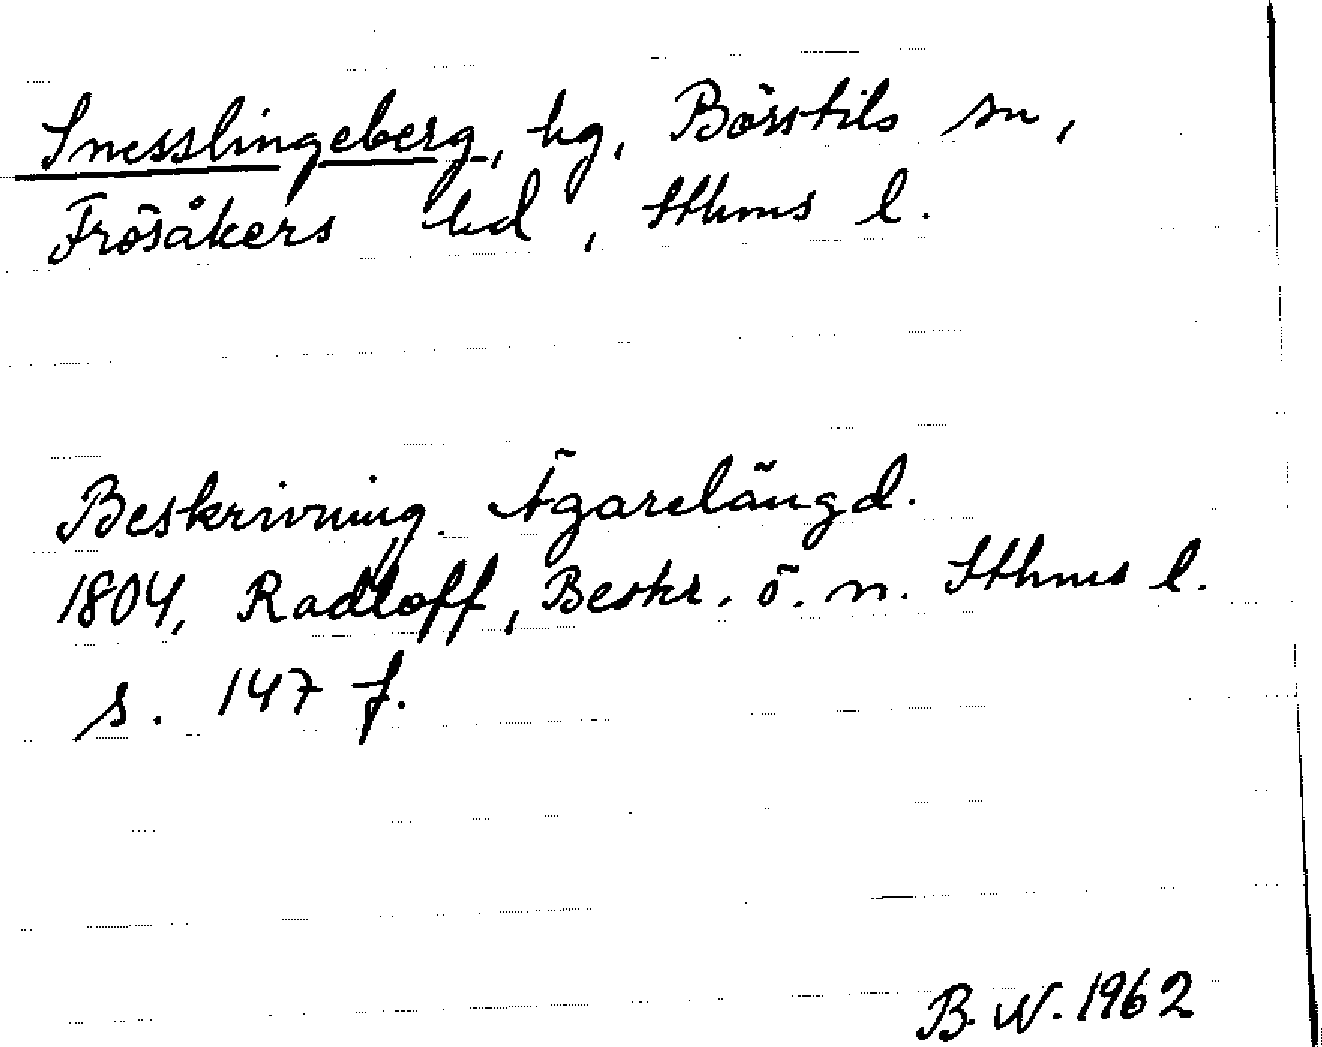 Snesslingeberg, hg, Börstils sn,
Frösåkers hd, Sthms l.
Beskrivning. Ägarelängd.
1804, Radloff, Beskr. ö. n. Sthms l.
s. 147 f.
B. W. 1962